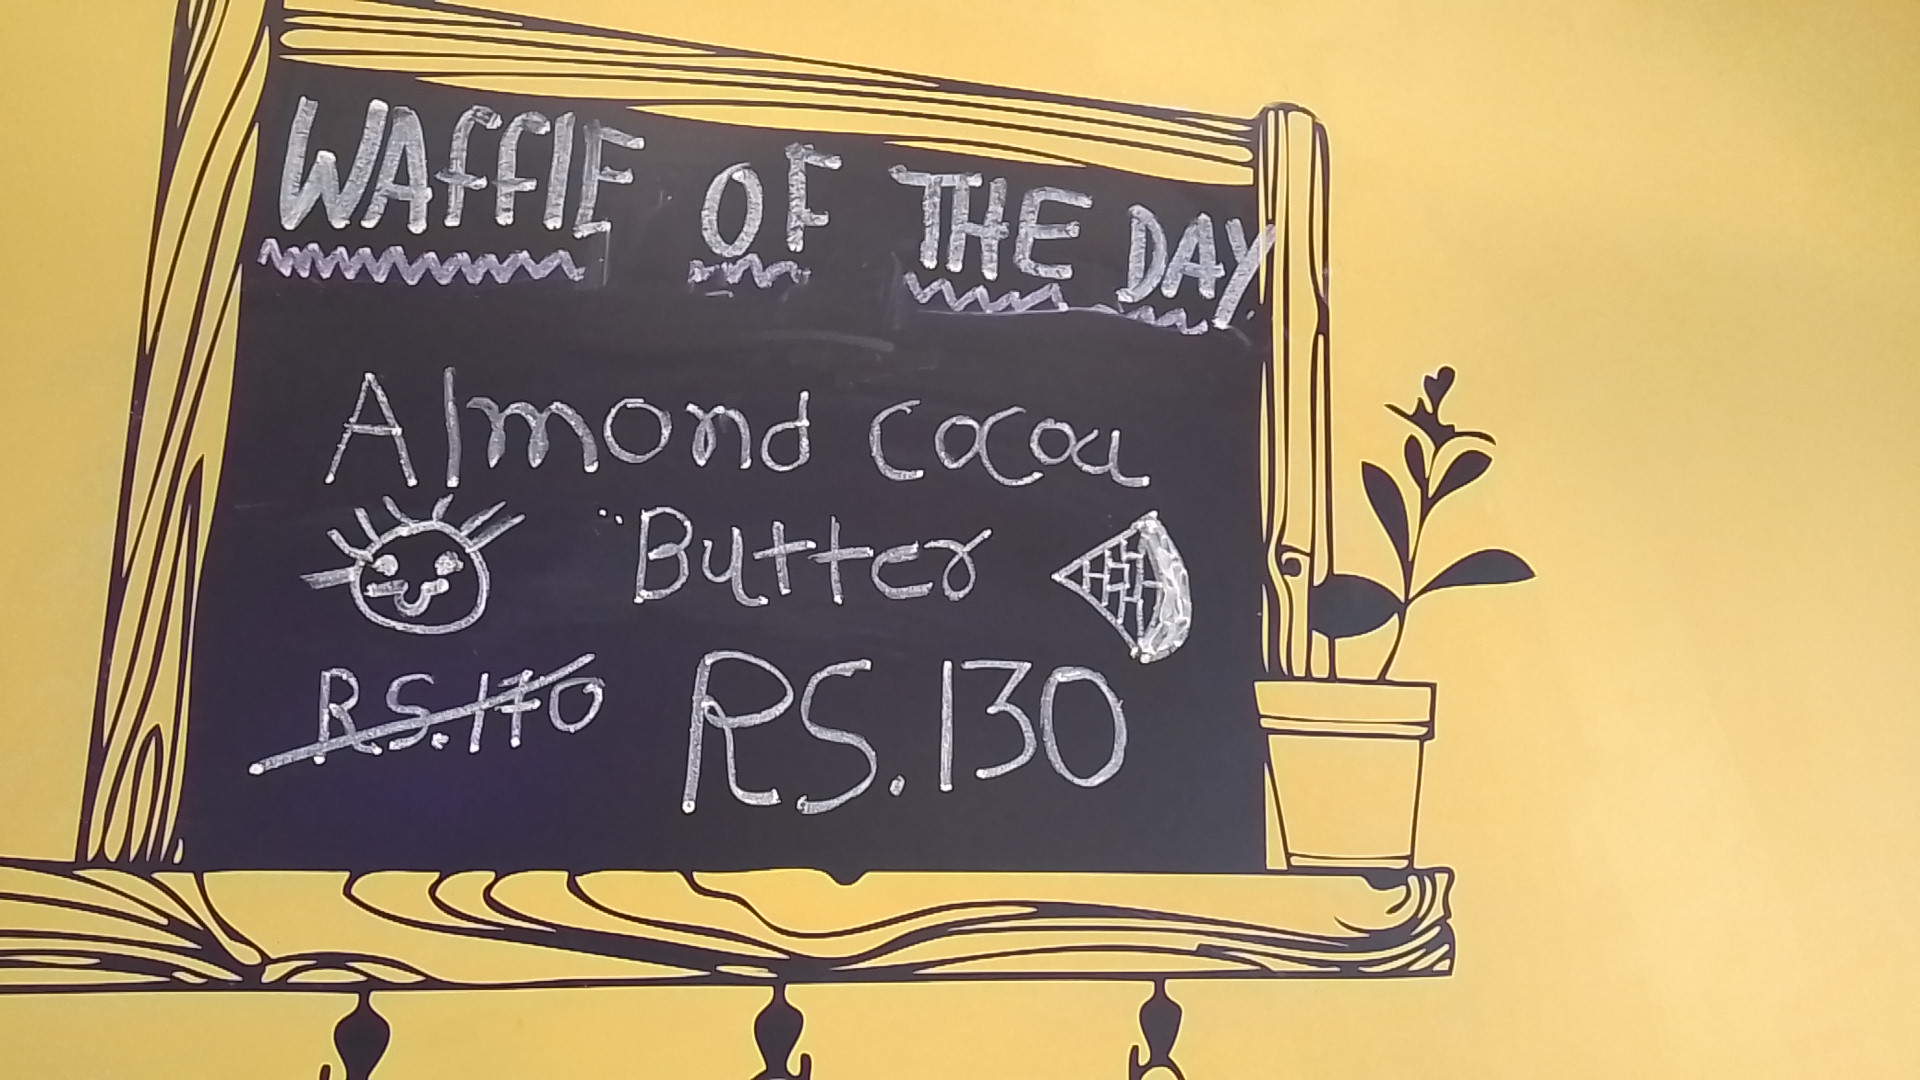 WAFFlE OF THE DAY
Almond cocoa
Butter
RS.170 RS.130